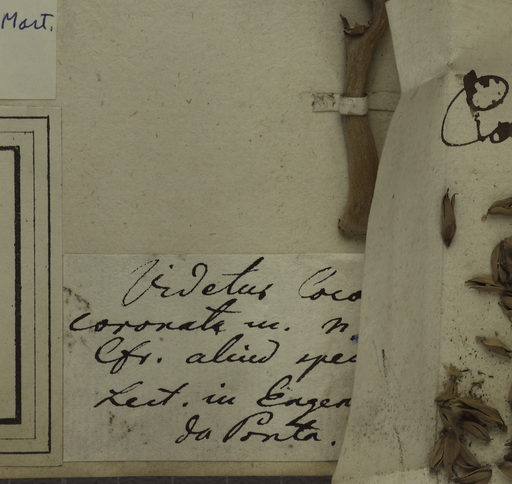 Mart.
Videtur Coco
coronata m. n
Cfr. aliud spec
Lect. in Engen
da Ponta.
Co